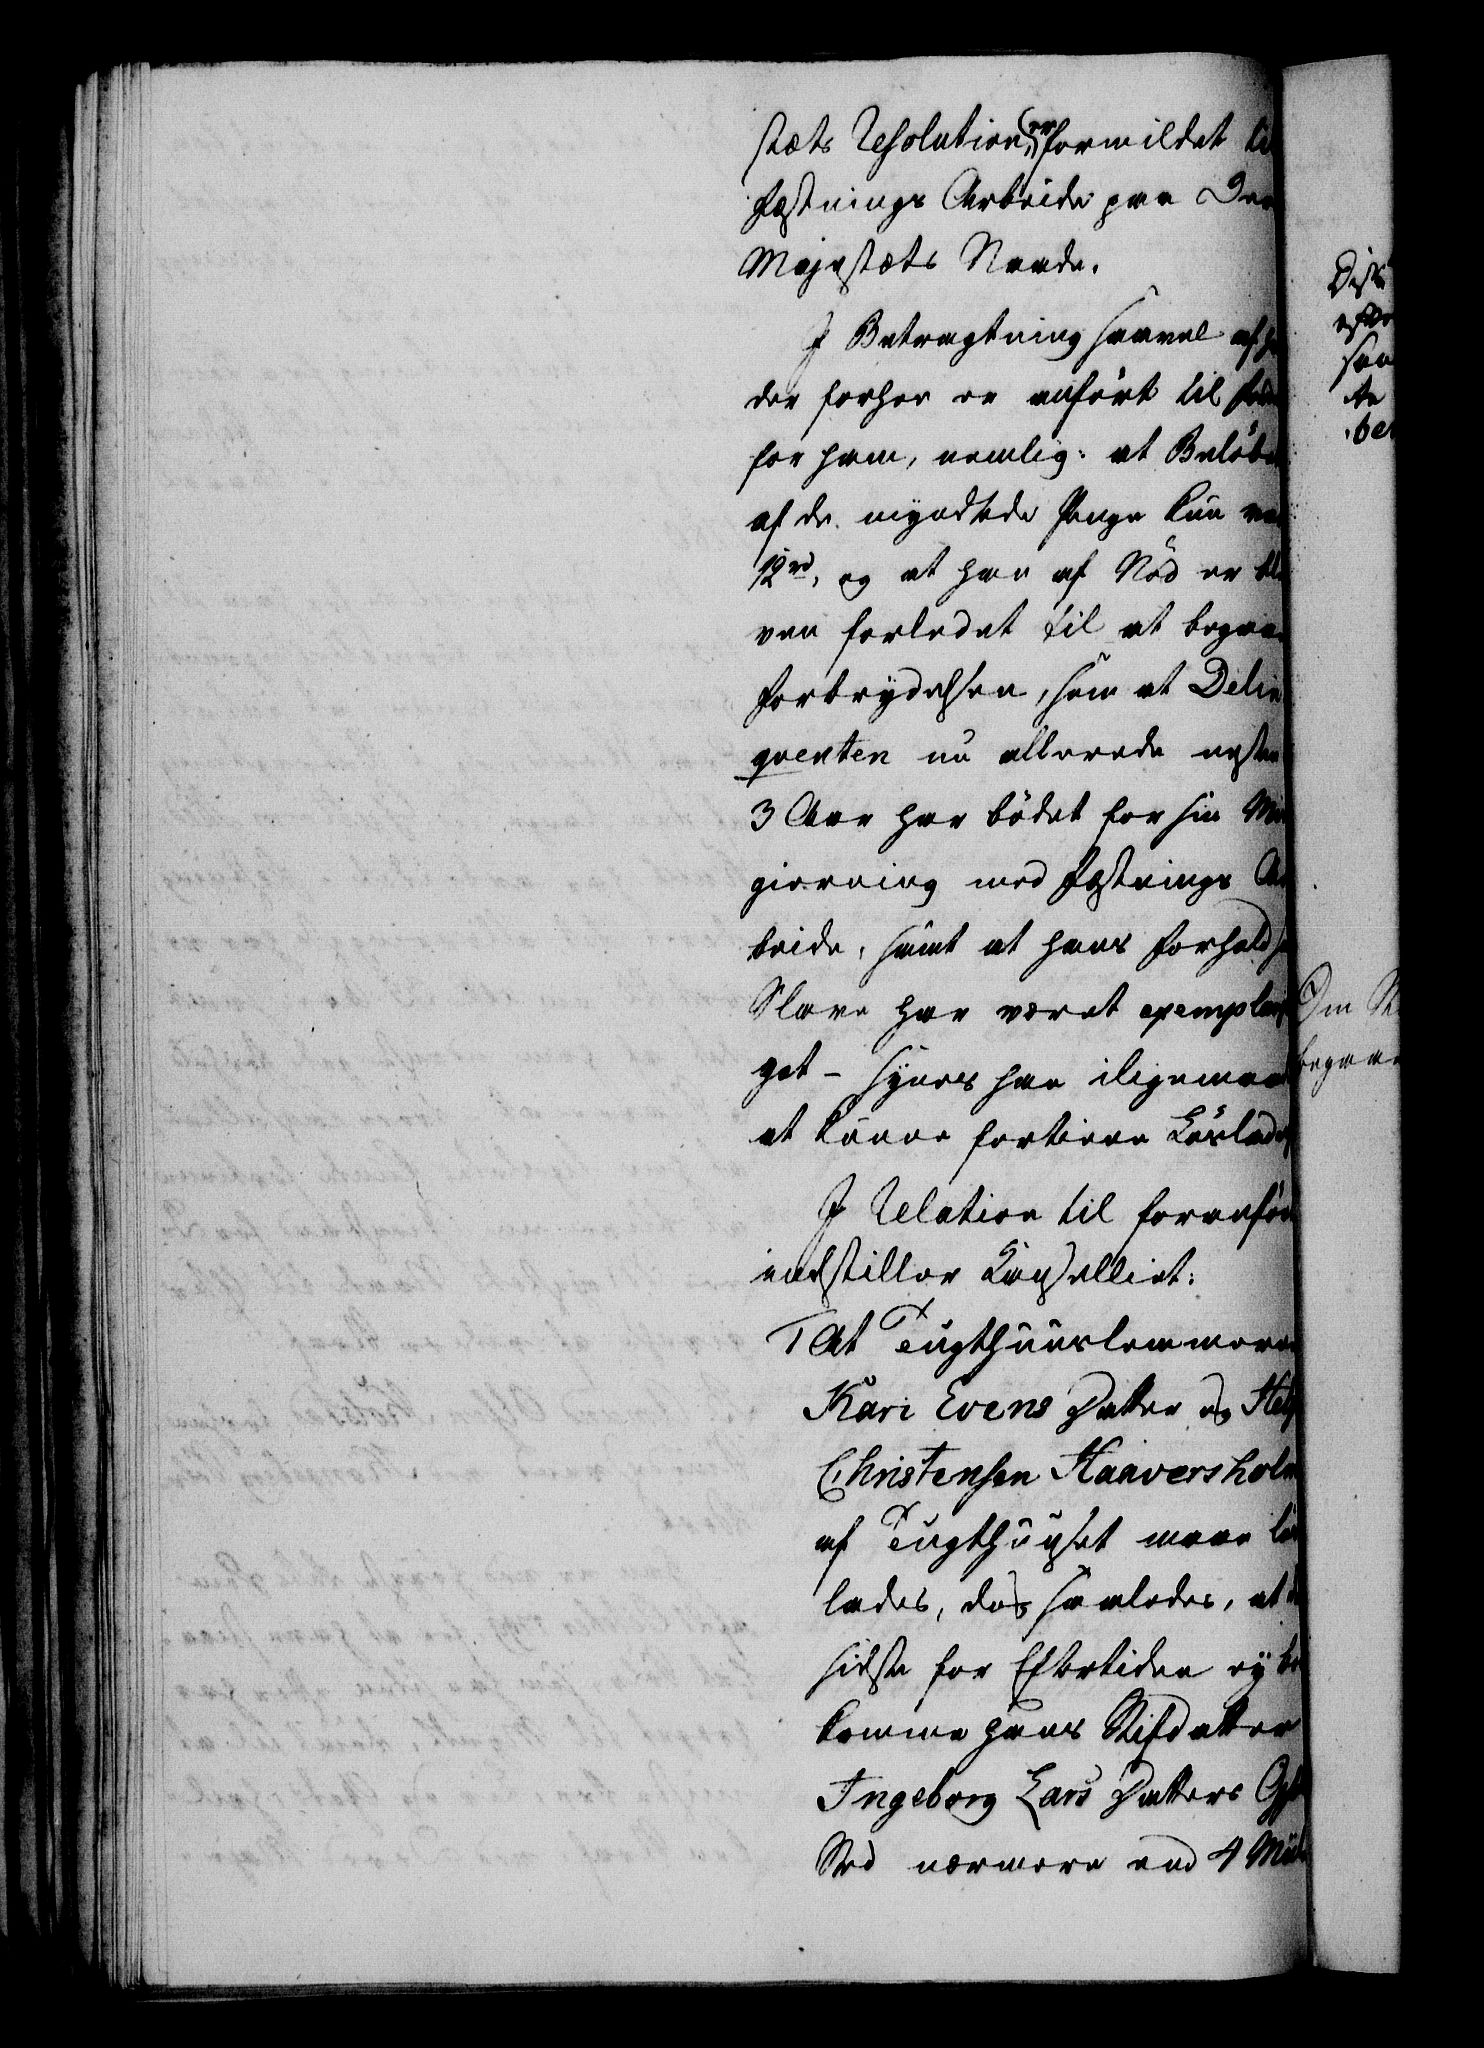 stæts Resolution, er formildet til
Fæstnings Arbeide paa Deres
Majestæts Naade.
I Betragtning saavel af hvad
der forhen er anført til
for ham, nemlig: at Beløbet
af de myndtede Penge kun var
12 rd, og at han af Nød er ble-
ven forledet til at begaae
Forbrydelsen, som at Delin-
qventen nu allerede næsten
3 Aar har bødet for sin Mis-
gierning med Fæstnings Ar-
beide, samt at hans Forhold som
Slave har været exemplarisk
got - synes han iligemaade
at kunne fortiene Løsladelse
I Relation til foranførte
indstiller Cancelliet:
1 At Tugthuuslemmerne
Kari Evens Datter og
Christensen Haaversholm
af Tugthuuset maae løs-
lades, dog saaledes, at den
sidste for Eftertiden ey be-
komme hans Stifdatter
Ingeborg Lars Datters Opholds
Sted nærmere end 4 Miile
Om
begaae